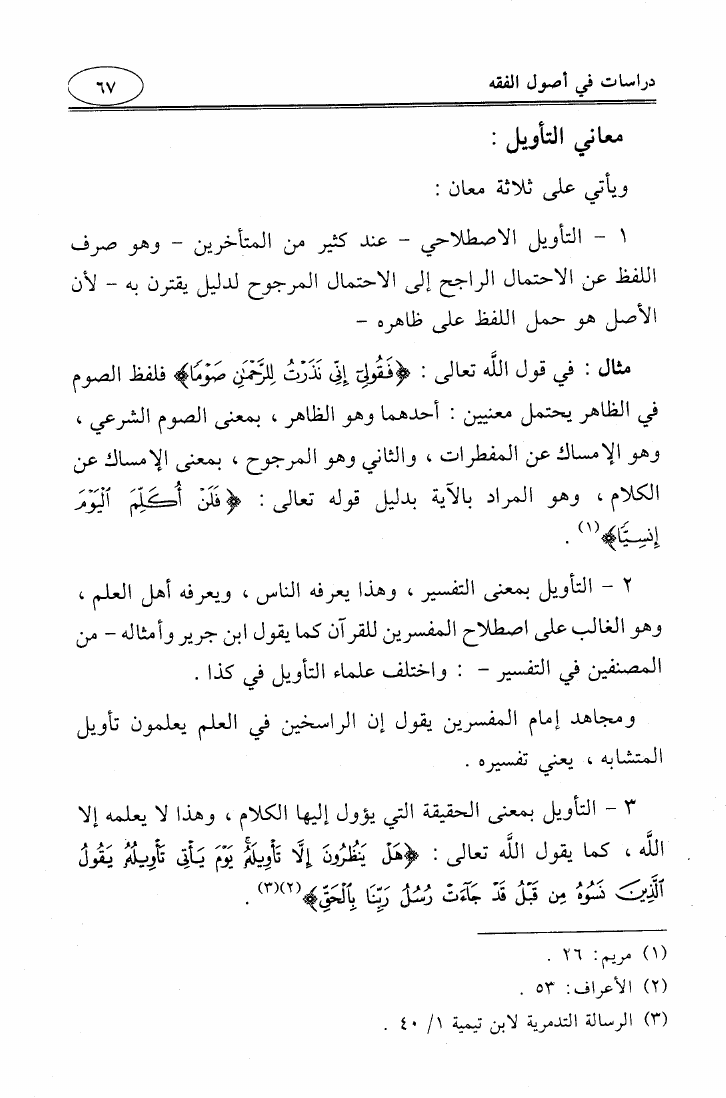 دراسات في أصول الفقه
٦٧
معاني التأويل :
ويأتي على ثلاثة معان :
١ - التأويل الاصطلاحي - عند كثير من المتأخرين - وهو صرف
اللفظ عن الاحتمال الراجح إلى الاحتمال المرجوح لدليل يقترن به - لأن
الأصل هو حمل اللفظ على ظاهره -
مثال : في قول الله تعالى : ﴿فَقُولِىٓ إِنِّى نَذَرْتُ لِلرَّحْمَٰنِ صَوْمًا﴾ فلفظ الصوم
في الظاهر يحتمل معنيين : أحدهما وهو الظاهر ، بمعنى الصوم الشرعي ،
وهو الإمساك عن المفطرات ، والثاني وهو المرجوح ، بمعنى الإمساك عن
الكلام ، وهو المراد بالآية بدليل قوله تعالى : ﴿فَلَنْ أُكَلِّمَ ٱلْيَوْمَ
إِنسِيًّا﴾(١) .
٢ - التأويل بمعنى التفسير ، وهذا يعرفه الناس ، ويعرفه أهل العلم ،
وهو الغالب على اصطلاح المفسرين للقرآن كما يقول ابن جرير وأمثاله - من
المصنفين في التفسير - : واختلف علماء التأويل في كذا .
ومجاهد إمام المفسرين يقول إن الراسخين في العلم يعلمون تأويل
المتشابه ، يعني تفسيره .
٣ - التأويل بمعنى الحقيقة التي يؤول إليها الكلام ، وهذا لا يعلمه إلا
الله ، كما يقول الله تعالى : ﴿هَلْ يَنظُرُونَ إِلَّا تَأْوِيلَهُۥ ۚ يَوْمَ يَأْتِى تَأْوِيلُهُۥ يَقُولُ
ٱلَّذِينَ نَسُوهُ مِن قَبْلُ قَدْ جَآءَتْ رُسُلُ رَبِّنَا بِٱلْحَقِّ﴾(٢)(٣) .
(١) مريم: ٢٦ .
(٢) الأعراف: ٥٣ .
(٣) الرسالة التدمرية لابن تيمية ١/ ٤٠ .